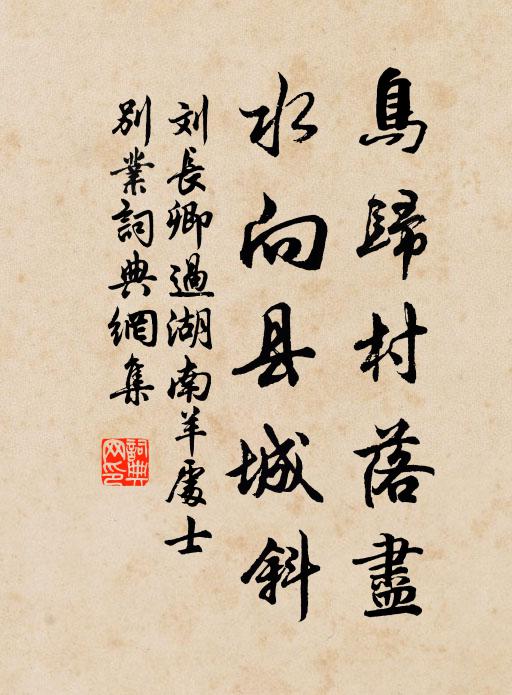 鳥歸村落盡
水向县城斜
刘長卿過湖南羊處士
別業詞典網集
詞典网印